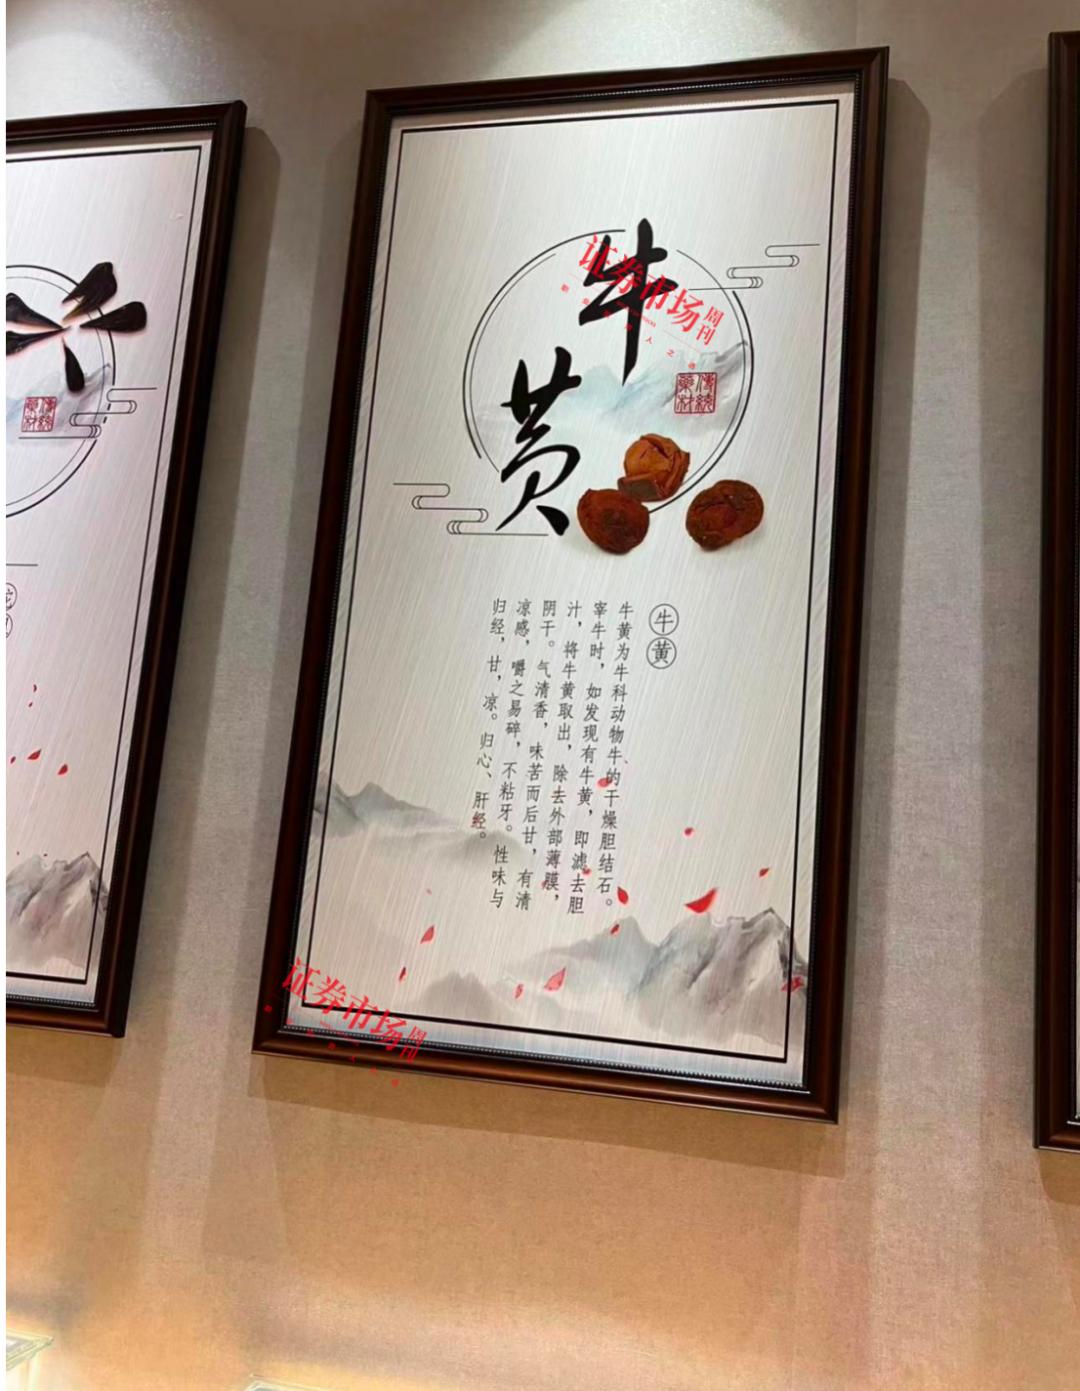 牛黄
傳統藥材
牛黄
牛黄为牛科动物牛、的干燥胆结石。
宰牛时，如发现有牛黄，即滤去胆
汁，将牛黄取出，除去外部薄膜，
阴干。气清香，味苦而后甘，有清
凉感，嚼之易碎，不粘牙。性味与
归经，甘，凉。归心、肝经。
傳統藥材
证券市场周刊
证券市场周刊